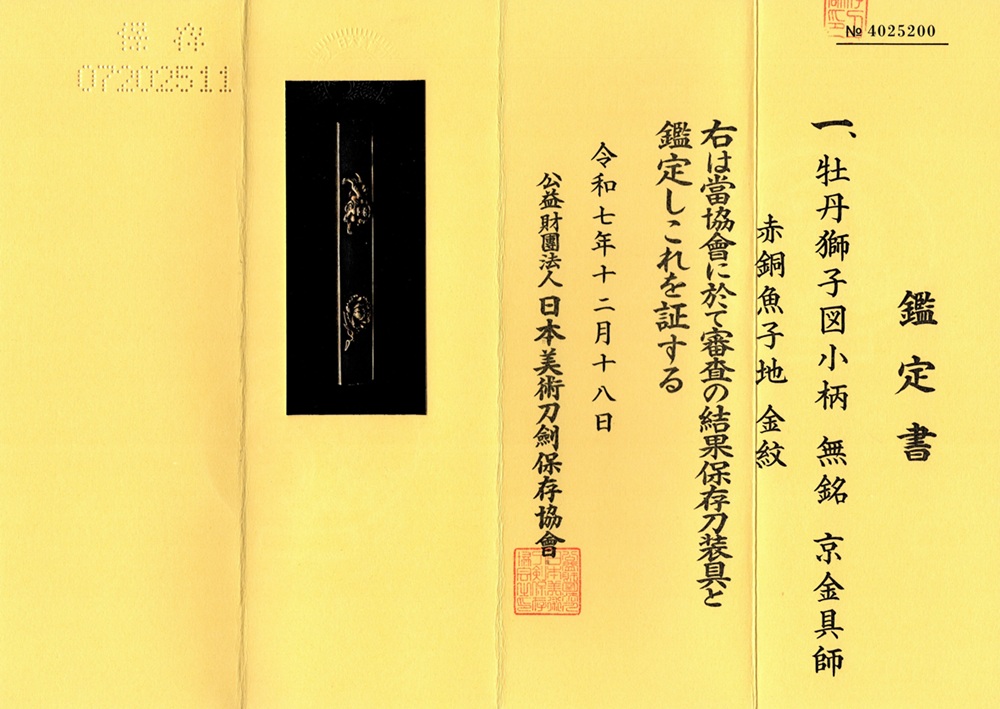 № 4025200
鑑定書
一、牡丹獅子図小柄 無銘 京金具師
赤銅魚子地 金紋
右は當協會に於て審査の結果保存刀装具と
鑑定しこれを証する
令和七年十二月十八日
公益財團法人日本美術刀劍保存協會
保存
07202511